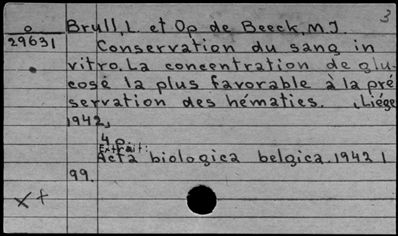 3
o Brull, L. et Op de Beeck, M.J.
29631 Conservation du sang in
vitro. La concentration de glu-
cose la plus favorable à la pré
servation des hématies. Liége
1942,
4 p.
Extrait:
Acta biologica belgica. 1942 I
99.
x +